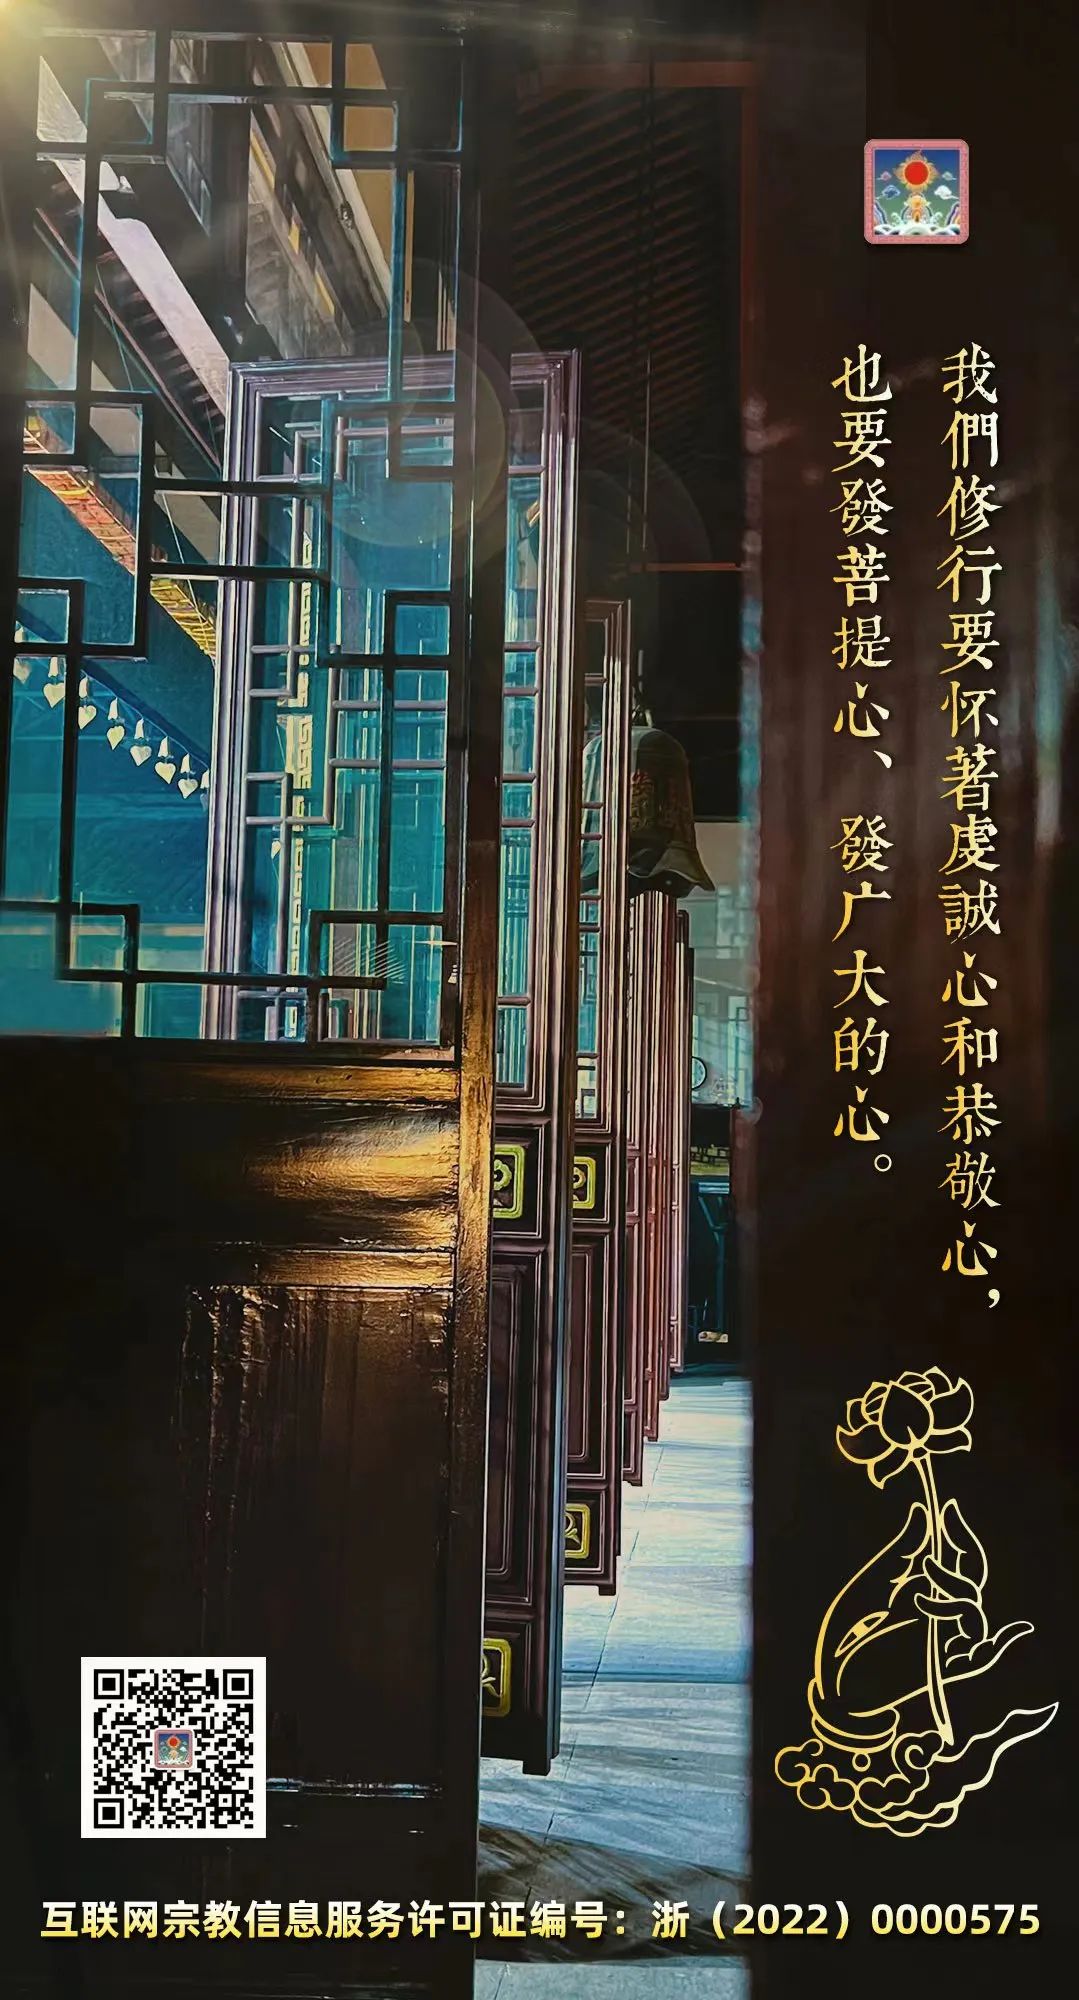 我們修行要怀著虔誠心和恭敬心，
也要發菩提心、發广大的心。
互联网宗教信息服务许可证编号：浙（2022）0000575